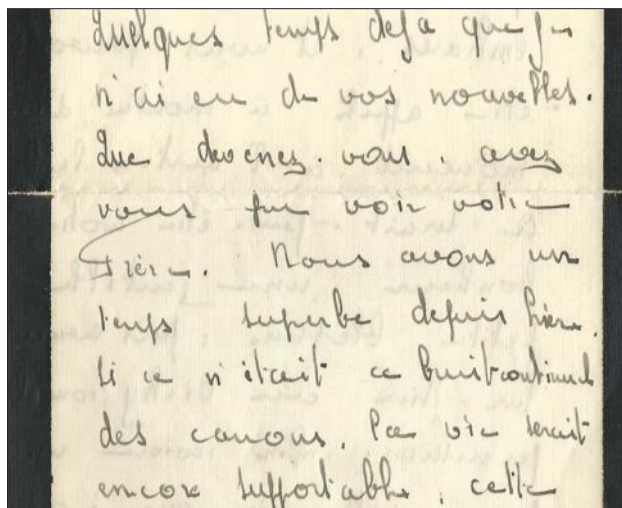 Quelques temps deja que je
n'ai eu de vos nouvelles.
Que devenez-vous. avez
vous pu voir votre
frère. Nous avons un
temps superbe depuis hier.
si ce n'était ce bruit continuel
des canons. la vie serait
encore supportable. cette